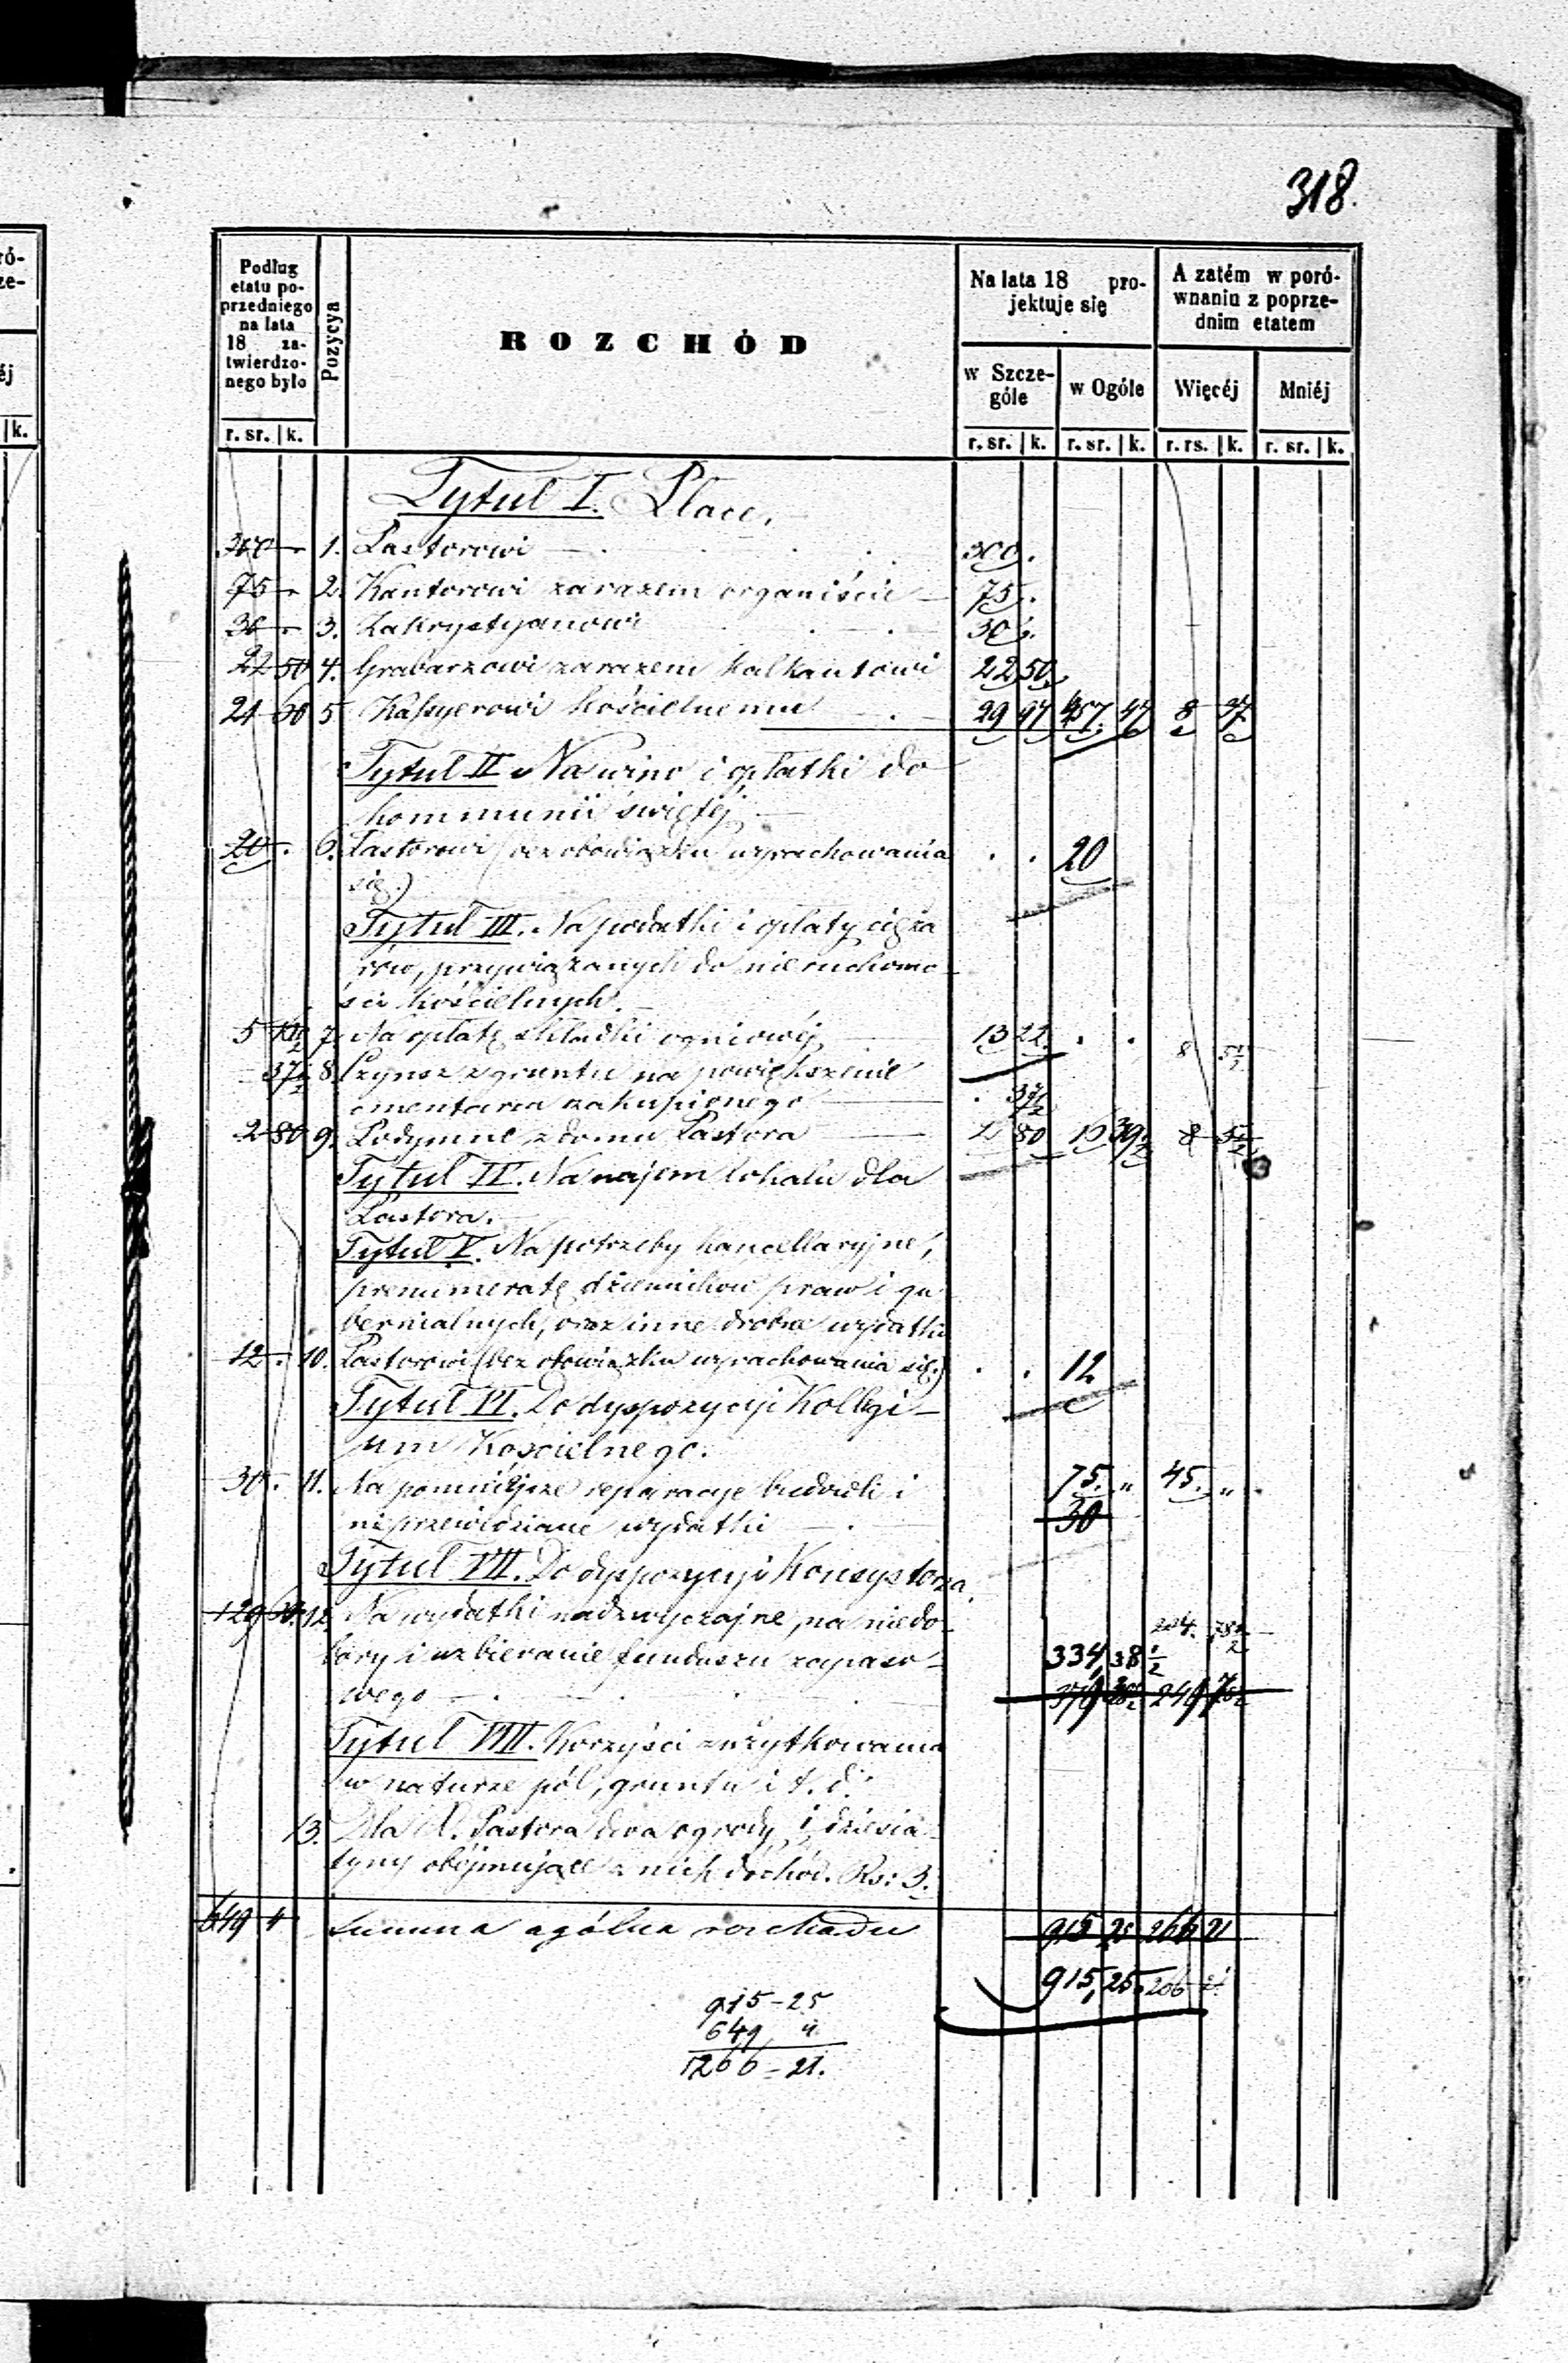 318.
Podług etatu poprzedniego na lata 18 zatwierdzonego było
Pozycya
ROZCHÓD
Na lata 18 projektuje się
A zatém w porównaniu z poprzednim etatem
w Szczególe
w Ogóle
Więcéj
Mniéj
r. sr. k. r. sr. k. r. sr. k. r. rs. k. r. sr. k.
Tytuł I. Płace.
1. Pastorowi 300.
75 2. Kantorowi zarazem organiście 75.
30 3. Zakrystyanowi 30.
22 50 4. Grabarzowi zarazem kalkantowi 22 50
21 50 5 Kassyerowi kościelnemu 29 97 457. 47 8 47
Tytuł II Na wino i opłatki do
kommunii świętéj
20 . 6. Pastorowi (bez obowiązku wyrachowania . . 20
się.)
Tytuł III. Na podatki i opłaty cięża
rów, przywiązanych do nieruchomo
ści kościelnych.
5 7. Na opłatę składki ogniowéj 13 22. . . 8 5½
37½ 8. Czynsz z gruntu na powiększenie
cmentarza zakupionego . 37½
2 80 9. Podymne z domu Pastora 2 80 16 39½ 8 5½
Tytuł IV. Na najem lokalu dla
Pastora.
Tytuł V. Na potrzeby kancellaryjne,
prenumeratę dzienników praw i gu
bernialnych, oraz inne drobne wydatki
12 . 10. Pastorowi (bez obowiązku wyrachowania się.) . . 12
Tytuł VI. Do dyspozycyi Kollegi-
um Kościelnego.
30 . 11. Na pomniéjsze reparacye budowli i 75. " 45. "
nieprzewidziane wydatki 30
Tytuł VII. Do dyspozycyi Konsystorza
129 12. Na wydatki nadzwyczajne, na niedo-
bory i uzbieranie funduszu zapaso- 334, 38½ 204. 78½
wego 379 38½ 249 78½
Tytuł VIII. Korzyści z użytkowania
w naturze pól, gruntu i t. d.
13. Dla X. Pastora dwa ogrody i dziesia
tyny obéjmujące z nich dochód. Rs: 3.
649 4 Summa ogólna rozchodu 915 25 266 21
915, 25. 266 21
915 - 25
649 4
266 - 21.